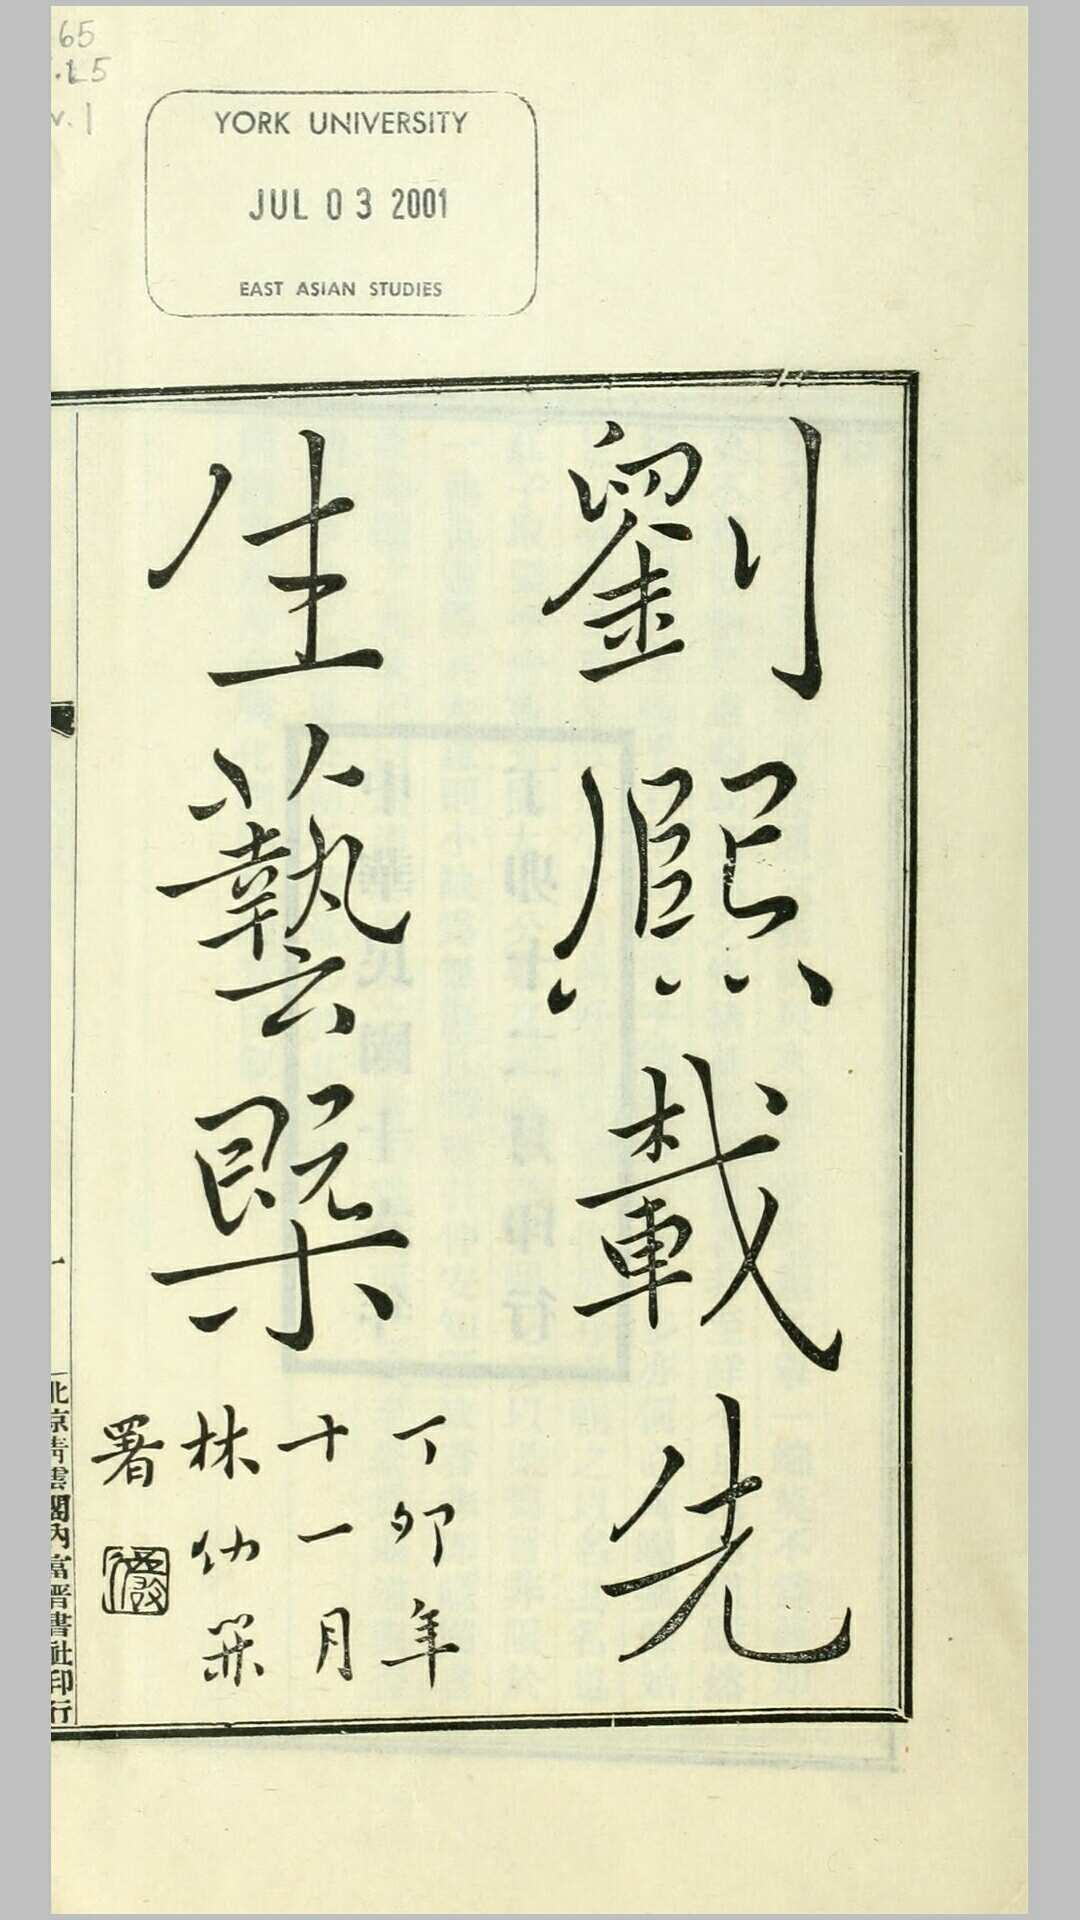 65
.L5
v.1
YORK UNIVERSITY
JUL 03 2001
EAST ASIAN STUDIES
劉熙載先
生藝槩
丁卯年
十一月
林仂
署
北京青雲閣內富晋書社印行